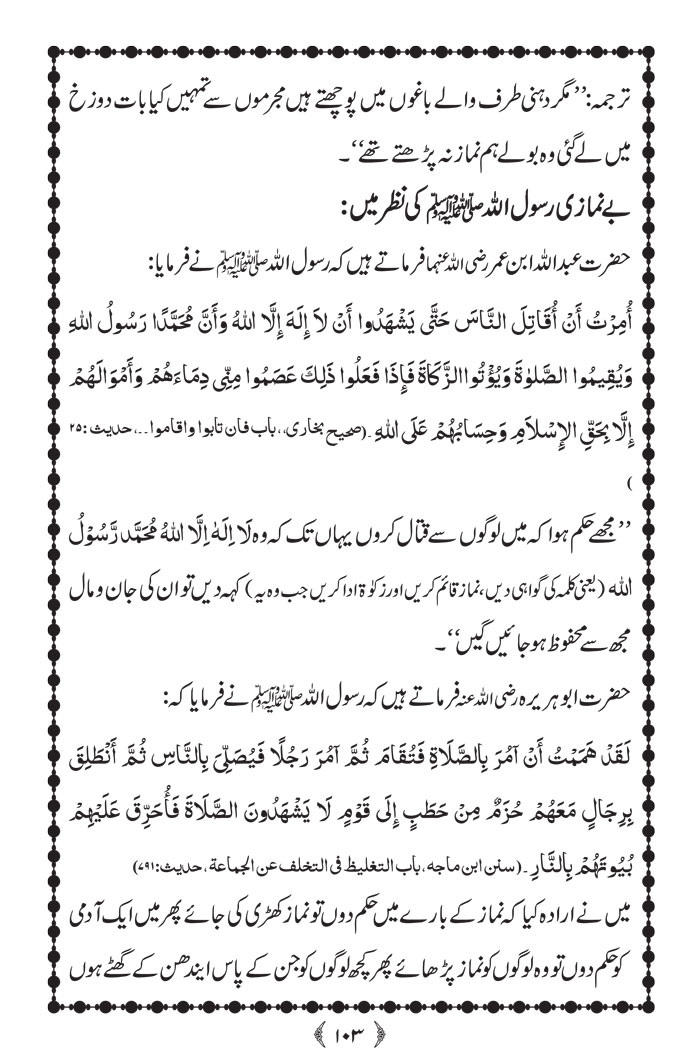 ترجمہ:’’مگر دہنی طرف والے باغوں میں پوچھتے ہیں مجرموں سے تمہیں کیا بات دوزخ
میں لے گئی وہ بولے ہم نماز نہ پڑھتے تھے‘‘۔
بے نمازی رسول اللہ ﷺ کی نظر میں:
حضرت عبداللہ ابن عمر رضی اللہ عنہما فرماتے ہیں کہ رسول اللہ ﷺ نے فرمایا:
أُمِرْتُ أَنْ أُقَاتِلَ النَّاسَ حَتَّى يَشْهَدُوا أَنْ لاَ إِلَهَ إِلَّا اللهُ وَأَنَّ مُحَمَّدًا رَسُولُ اللهِ
وَيُقِيمُوا الصَّلوٰةَ وَيُؤْتُوا الزَّكَاةَ فَإِذَا فَعَلُوا ذَلِكَ عَصَمُوا مِنِّي دِمَاءَهُمْ وَأَمْوَالَهُمْ
إِلَّا بِحَقِّ الإِسْلاَمِ وَحِسَابُهُمْ عَلَى اللهِ ۔(صحیح بخاری،، باب فان تابوا واقاموا۔۔، حدیث :۲۵
)
’’مجھے حکم ہوا کہ میں لوگوں سے قتال کروں یہاں تک کہ وہ لَا اِلٰهَ اِلَّا اللهُ مُحَمَّد رَّسُوْلُ
الله (یعنی کلمہ کی گواہی دیں، نماز قائم کریں اور زکوٰۃ ادا کریں جب وہ یہ) کہہ دیں تو ان کی جان و مال
مجھ سے محفوظ ہو جائیں گیں‘‘۔
حضرت ابوہریرہ رضی اللہ عنہ فرماتے ہیں کہ رسول اللہ ﷺ نے فرمایا کہ:
لَقَدْ هَمَمْتُ أَنْ آمُرَ بِالصَّلَاةِ فَتُقَامَ ثُمَّ آمُرَ رَجُلًا فَيُصَلِّيَ بِالنَّاسِ ثُمَّ أَنْطَلِقَ
بِرِجَالٍ مَعَهُمْ حُزَمٌ مِنْ حَطَبٍ إِلَى قَوْمٍ لَا يَشْهَدُونَ الصَّلَاةَ فَأُحَرِّقَ عَلَيْهِمْ
بُيُوتَهُمْ بِالنَّارِ ۔(سنن ابن ماجہ، باب التغلیظ فی التخلف عن الجماعۃ، حدیث:۷۹۱)
میں نے ارادہ کیا کہ نماز کے بارے میں حکم دوں تو نماز کھڑی کی جائے پھر میں ایک آدمی
کو حکم دوں تو وہ لوگوں کو نماز پڑھائے پھر کچھ لوگوں کو جن کے پاس ایندھن کے گٹھے ہوں
۱۰۳